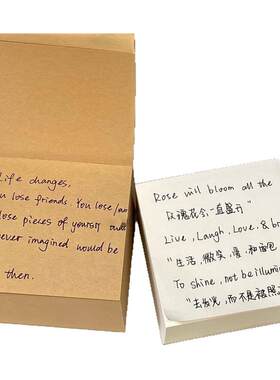 Life changes,
You lose friends. You lose
lose pieces of yourself
never imagined would be
then.
Rose will bloom all the
玫瑰花会一直盛开
Live, Laugh, Love, &
"生活,微笑,爱,和面包
To shine, not be
"去发光,而不是被照